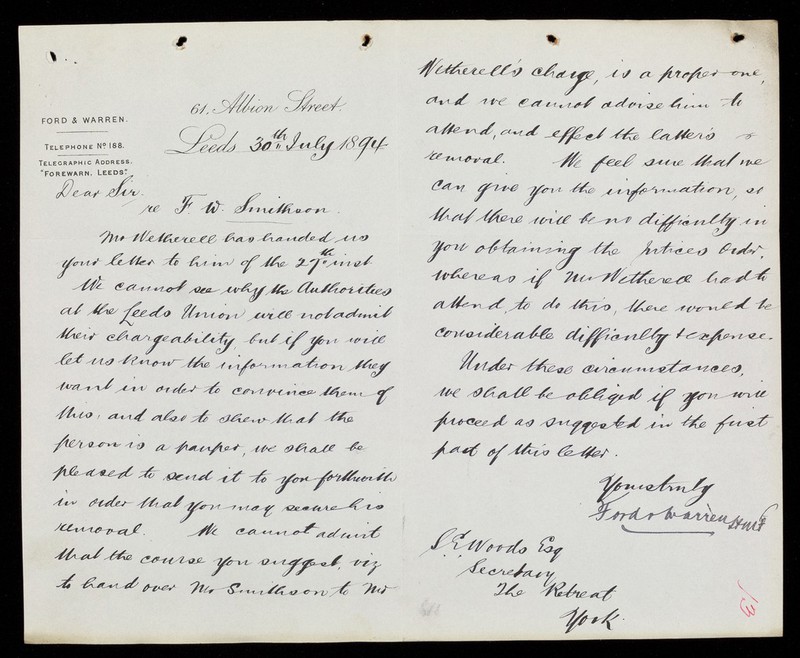 FORD & WARREN.
TELEPHONE No 188.
TELEGRAPHIC ADDRESS.
"FOREWARN, LEEDS."
61, Albion Street.
Leeds 30th July 1894
Dear Sir.
re F. W. Smithson.
Mr Wetherell has handed us
your letter to him of the 27th inst
We cannot see why the Authorities
at the Leeds Union will not admit
their chargeability, but if you will
let us know the information they
want in order to convince them of
this, and also to shew that the
person is a pauper, we shall be
pleased to send it to you forthwith
in order that you may secure his
removal. We cannot admit
that the course you suggest, viz
to hand over Mr Smithson to Mr
Wetherell's charge, is a proper one,
and we cannot advise him to
attend, and effect the latter's
removal. We feel sure that we
can give you the information, so
that there will be no difficulty in
you obtaining the Justices Order,
whereas if Mr Wetherell had to
attend, to do this, there would be
considerable difficulty & expense.
Under these circumstances,
we shall be obliged if you will
proceed as suggested in the first
part of this letter.
Yours truly
Ford & Warren
S. E. Woods Esq
Secretary
The Retreat
York.